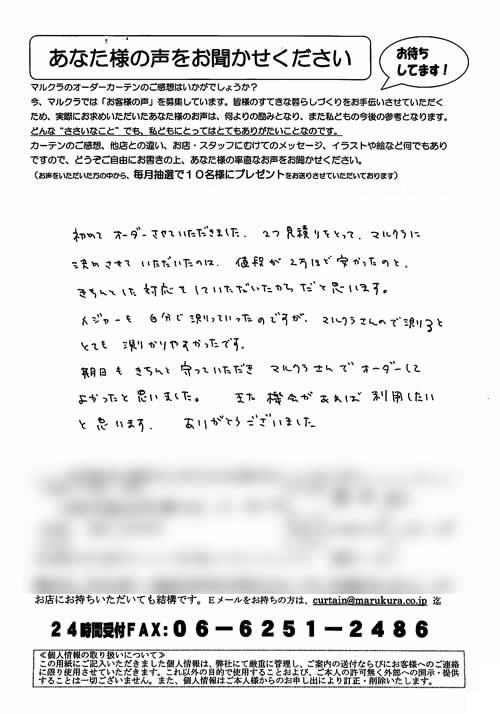 あなた様の声をお聞かせください
お待ち
してます！
マルクラのオーダーカーテンのご感想はいかがでしょうか？
今、マルクラでは「お客様の声」を募集しています。皆様のすてきな暮らしづくりをお手伝いさせていただく
ため、実際にお求めいただいたあなた様のお声は、何よりの励みとなり、また私どもの今後の参考となります。
どんな“ささいなこと”でも、私どもにとってはとてもありがたいことなのです。
カーテンのご感想、他店との違い、お店・スタッフにむけてのメッセージ、イラストや絵など何でもあり
ですので、どうぞご自由にお書きの上、あなた様の率直なお声をお聞かせください。
（お声をいただいた方の中から、毎月抽選で１０名様にプレゼントをお送りさせていただいております）
初めて オーダーさせていただきました。 2つ見積りをとって、マルクラに
決めさせて いただいたのは、値段が2万ほど安かったのと、
きちんとした対応をしていただいたからだと思います。
メジャーも 自分で測っていったのですが、マルクラさんので測ると
とても 測りかりやすかったです。
期日も きちんと 守っていただき マルクラさんで オーダーして
よかったと思いました。 また 機会があれば 利用したい
と思います。 ありがとうございました。
お店にお持ちいただいても結構です。Ｅメールをお持ちの方は、curtain@marukura.co.jp 迄
２４時間受付ＦＡＸ：０６－６２５１－２４８６
≪個人情報の取り扱いについて≫
この用紙にご記入いただきました個人情報は、弊社にて厳重に管理し、ご案内の送付ならびにお客様へのご連絡
に限り使用させていただきます。これ以外の目的で使用することおよび、ご本人の許可無く外部への開示・提供
することは一切ございません。また、個人情報はご本人様からのお申し出により訂正・削除いたします。